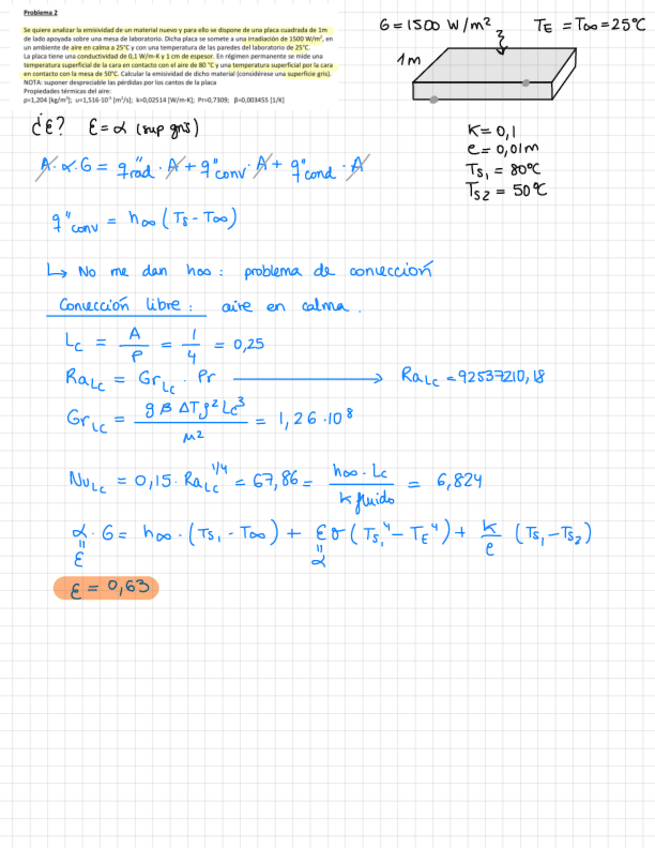 Problema 2
Se quiere analizar la emisividad de un material nuevo y para ello se dispone de una placa cuadrada de 1m
de lado apoyada sobre una mesa de laboratorio. Dicha placa se somete a una irradiación de 1500 W/m², en
un ambiente de aire en calma a 25°C y con una temperatura de las paredes del laboratorio de 25°C.
La placa tiene una conductividad de 0,1 W/m·K y 1 cm de espesor. En régimen permanente se mide una
temperatura superficial de la cara en contacto con el aire de 80 °C y una temperatura superficial por la cara
en contacto con la mesa de 50°C. Calcular la emisividad de dicho material (considérese una superficie gris).
NOTA: suponer despreciable las pérdidas por los cantos de la placa
Propiedades térmicas del aire:
ρ=1,204 [kg/m³]; υ=1,516·10⁻⁵ [m²/s]; k=0,02514 [W/m·K]; Pr=0,7309; β=0,003455 [1/K]
G = 1500 W/m² TE = T∞ = 25°C
1m
K = 0,1
e = 0,01m
Ts1 = 80°C
Ts2 = 50°C
¿ε? ε = α (sup gris)
A·α·G = q"rad · A + q"conv · A + q"cond · A
q"conv = h∞ (Ts - T∞)
↳ No me dan h∞ : problema de convección
Convección libre : aire en calma.
Lc = A/P = 1/4 = 0,25
RaLc = GrLc · Pr → RaLc = 92537210,18
GrLc = g β ΔT ρ² Lc³ / μ² = 1,26·10⁸
NuLc = 0,15 · RaLc^1/4 = 67,86 = h∞ · Lc / k fluido = 6,824
α · G = h∞ · (Ts1 - T∞) + εσ (Ts1⁴ - TE⁴) + k/e (Ts1 - Ts2)
= ε = α
ε = 0,63